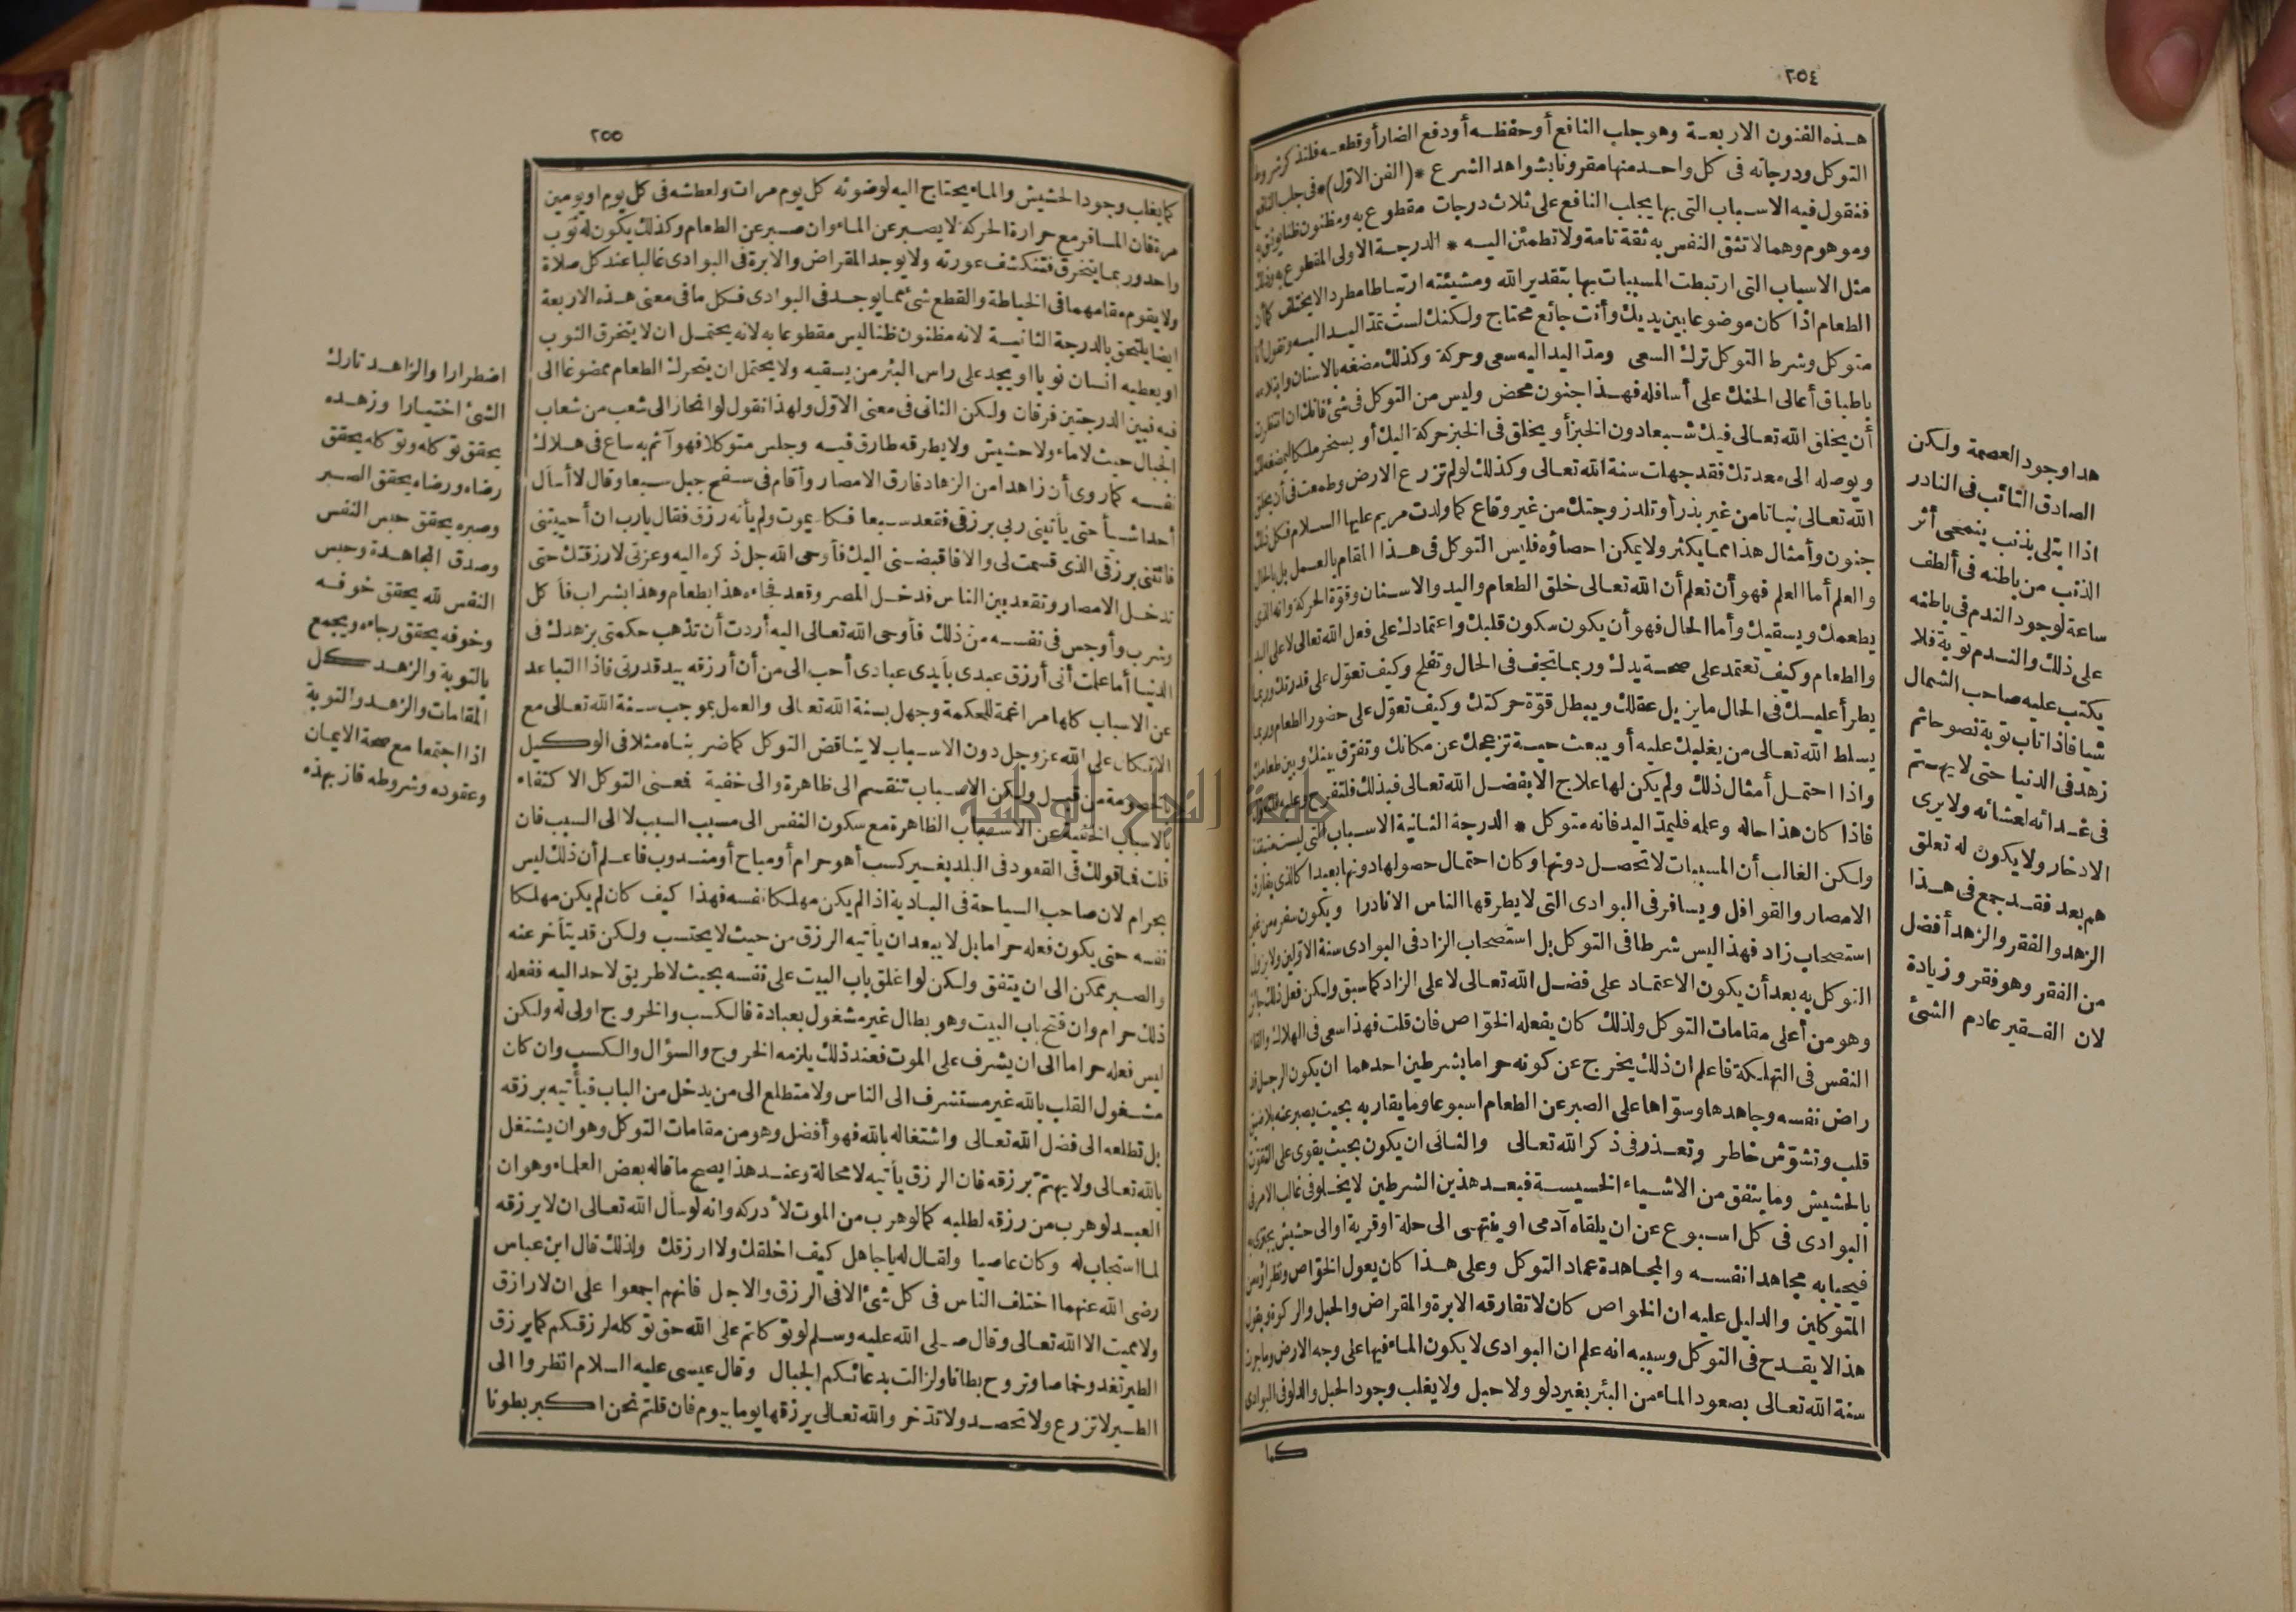 ٢٥٤
هذه الفنون الاربعة وهو جلب النافع أو حفظه أو دفع الضار أو قطعه فلنذكر شروط
التوكل ودرجاته فى كل واحد منها مقرونا بشواهد الشرع *(الفن الاول)* فى جلب النافع
فنقول فيه الاسباب التى بها يجلب النافع على ثلاث درجات مقطوع به ومظنون ظنا يوثق به
وموهوم وهما لا تثق النفس به ثقة تامة ولا تطمئن اليه * الدرجة الاولى المقطوع به وذلك
مثل الاسباب التى ارتبطت المسببات بها بتقدير الله ومشيئته ارتباطا مطردا لا يختلف كما أن
الطعام اذا كان موضوعا بين يديك وأنت جائع محتاج ولكنك لست تمد اليد اليه وتقول أنا
متوكل وشرط التوكل ترك السعى ومد اليد اليه سعى وحركة وكذلك مضغه بالاسنان وابتلاعه
باطباق أعالى الحنك على أسافله فهذا جنون محض وليس من التوكل فى شئ فانك ان انتظرت
أن يخلق الله تعالى فيك شبعا دون الخبز أو يخلق فى الخبز حركة اليك أو يسخر ملكا ليمضغه لك
ويوصله الى معدتك فقد جهلت سنة الله تعالى وكذلك لو لم تزرع الارض وطمعت فى أن يخلق
الله تعالى نباتا من غير بذر أو تلد زوجتك من غير وقاع كما ولدت مريم عليها السلام فكل ذلك
جنون وأمثال هذا مما يكثر ولا يمكن احصاؤه فليس التوكل فى هذا المقام بالعمل بل بالحال
والعلم أما العلم فهو أن تعلم أن الله تعالى خلق الطعام واليد والاسنان وقوة الحركة وانه الذى
يطعمك ويسقيك وأما الحال فهو أن يكون سكون قلبك واعتمادك على فعل الله تعالى لا على اليد
والطعام وكيف تعتمد على صحة يدك وربما تجف فى الحال وتفلج وكيف تعول على قدرتك وربما
يطرأ عليك فى الحال ما يزيل عقلك ويبطل قوة حركتك وكيف تعول على حضور الطعام وربما
يسلط الله تعالى من يغلبك عليه أو يبعث حية تزعجك عن مكانك وتفرق بينك وبين طعامك
واذا احتمل أمثال ذلك ولم يكن لها علاج الا بفضل الله تعالى فبذلك فلتفرح وعليه فلتعول
فاذا كان هذا حاله وعلمه فليمد اليد فانه متوكل * الدرجة الثانية الاسباب التى ليست متيقنة
ولكن الغالب أن المسببات لا تحصل دونها وكان احتمال حصولها دونها بعيدا كالذى يفارق
الامصار والقوافل ويسافر فى البوادى التى لا يطرقها الناس الا نادرا ويكون سفره من غير
استصحاب زاد فهذا ليس شرطا فى التوكل بل استصحاب الزاد فى البوادى سنة الاولين ولا يزول
التوكل به بعد أن يكون الاعتماد على فضل الله تعالى لا على الزاد كما سبق ولكن فعل ذلك جائز
وهو من أعلى مقامات التوكل ولذلك كان يفعله الخواص فان قلت فهذا سعى فى الهلاك والقاء
النفس فى التهلكة فاعلم ان ذلك يخرج عن كونه حراما بشرطين احدهما ان يكون الرجل قد
راض نفسه وجاهدها وسواها على الصبر عن الطعام اسبوعا وما يقاربه بحيث يصبر عنه بلا ضيق
قلب وتشوش خاطر وتعذر فى ذكر الله تعالى والثانى ان يكون بحيث يقوى على التقوت
بالحشيش وما يتفق من الاشياء الخسيسة فبعد هذين الشرطين لا يخلو فى غالب الامر فى
البوادى فى كل اسبوع عن ان يلقاه آدمى او ينتهى الى حلة او قرية او الى حشيش يجتزى به
فيحيا به مجاهدا نفسه والمجاهدة عماد التوكل وعلى هذا كان يعول الخواص ونظراؤه من
المتوكلين والدليل عليه ان الخواص كان لا تفارقه الابرة والمقراض والحبل والركوة ويقول
هذا لا يقدح فى التوكل وسببه انه علم ان البوادى لا يكون الماء فيها على وجه الارض وما جرت
سنة الله تعالى بصعود الماء من البئر بغير دلو ولا حبل ولا يغلب وجود الحبل والدلو فى البوادى
كما
هذا وجود العصمة ولكن
الصادق التائب فى النادر
اذا ابتلى بذنب ينمحى أثر
الذنب من باطنه فى ألطف
ساعة لوجود الندم فى باطنه
على ذلك والندم توبة فلا
يكتب عليه صاحب الشمال
شيا فاذا تاب توبة نصوحا ثم
زهد فى الدنيا حتى لا يهتم
فى غدائه لعشائه ولا يرى
الادخار ولا يكون له تعلق
هم بعد فقد جمع فى هذا
الزهد والفقر والزهد أفضل
من الفقر وهو فقر وزيادة
لان الفقير عادم الشئ
٢٥٥
كما يغلب وجود الحشيش والماء يحتاج اليه لوضوئه كل يوم مرات ولعطشه فى كل يوم او يومين
مرة فان المسافر مع حرارة الحركة لا يصبر عن الماء وان صبر عن الطعام وكذلك يكون له ثوب
واحد وربما يتخرق فتنكشف عورته ولا يوجد المقراض والابرة فى البوادى غالبا عند كل صلاة
ولا يقوم مقامهما فى الخياطة والقطع شئ مما يوجد فى البوادى فكل ما فى معنى هذه الاربعة
ايضا يلتحق بالدرجة الثانية لانه مظنون ظنا ليس مقطوعا به لانه يحتمل ان لا يتخرق الثوب
او يعطيه انسان ثوبا او يجد على راس البئر من يسقيه ولا يحتمل ان يتحرك الطعام ممضوغا الى
فيه فبين الدرجتين فرقان ولكن الثانى فى معنى الاول ولهذا نقول لو انحاز الى شعب من شعاب
الجبال حيث لا ماء ولا حشيش ولا يطرقه طارق فيه وجلس متوكلا فهو آثم به ساع فى هلاك
نفسه كما روى أن زاهدا من الزهاد فارق الامصار وأقام فى سفح جبل سبعا وقال لا أسأل
أحدا شيأ حتى يأتينى ربى برزقى فقعد سبعا فكاد يموت ولم يأته رزق فقال يا رب ان أحييتنى
فائتنى برزقى الذى قسمت لى والا فاقبضنى اليك فأوحى الله جل ذكره اليه وعزتى لا رزقتك حتى
تدخل الامصار وتقعد بين الناس فدخل المصر وقعد فجاءه هذا بطعام وهذا بشراب فأكل
وشرب وأوجس فى نفسه من ذلك فأوحى الله تعالى اليه أردت أن تذهب حكمتى بزهدك فى
الدنيا أما علمت أنى أرزق عبدى بأيدى عبادى أحب الى من أن أرزقه بيد قدرتى فاذا التباعد
عن الاسباب كلها مراغمة للحكمة وجهل بسنة الله تعالى والعمل بموجب سنة الله تعالى مع
الاتكال على الله عز وجل دون الاسباب لا يناقض التوكل كما ضربناه مثلا فى الوكيل
بالخصومة من قبل ولكن الاسباب تنقسم الى ظاهرة والى خفية فمعنى التوكل الاكتفاء
بالاسباب الخفية عن الاسباب الظاهرة مع سكون النفس الى مسبب السبب لا الى السبب فان
قلت فما قولك فى القعود فى البلد بغير كسب أهو حرام أو مباح أو مندوب فاعلم أن ذلك ليس
بحرام لان صاحب السياحة فى البادية اذا لم يكن مهلكا نفسه فهذا كيف كان لم يكن مهلكا
نفسه حتى يكون فعله حراما بل لا يبعد ان يأتيه الرزق من حيث لا يحتسب ولكن قد يتأخر عنه
والصبر ممكن الى ان يتفق ولكن لو اغلق باب البيت على نفسه بحيث لا طريق لاحد اليه ففعله
ذلك حرام وان فتح باب البيت وهو بطال غير مشغول بعبادة فالكسب والخروج اولى له ولكن
ليس فعله حراما الى ان يشرف على الموت فعند ذلك يلزمه الخروج والسؤال والكسب وان كان
مشغول القلب بالله غير مستشرف الى الناس ولا متطلع الى من يدخل من الباب فيأتيه برزقه
بل تطلعه الى فضل الله تعالى واشتغاله بالله فهو أفضل وهو من مقامات التوكل وهو ان يشتغل
بالله تعالى ولا يهتم برزقه فان الرزق يأتيه لا محالة وعند هذا يصح ما قاله بعض العلماء وهو ان
العبد لو هرب من رزقه لطلبه كما لو هرب من الموت لأدركه وانه لو سأل الله تعالى ان لا يرزقه
لما استجاب له وكان عاصيا ولقال له يا جاهل كيف اخلقك ولا ارزقك ولذلك قال ابن عباس
رضى الله عنهما اختلف الناس فى كل شئ الا فى الرزق والاجل فانهم اجمعوا على ان لا رازق
ولا مميت الا الله تعالى وقال صلى الله عليه وسلم لو توكلتم على الله حق توكله لرزقكم كما يرزق
الطير تغدو خماصا وتروح بطانا ولزالت بدعائكم الجبال وقال عيسى عليه السلام انظروا الى
الطير لا تزرع ولا تحصد ولا تدخر والله تعالى يرزقها يوما بيوم فان قلتم نحن اكبر بطونا
اضطرارا والزاهد تارك
الشئ اختيارا وزهده
يحقق توكله وتوكله يحقق
رضاه ورضاه يحقق الصبر
وصبره يحقق حبس النفس
وصدق المجاهدة وحبس
النفس لله يحقق خوفه
وخوفه يحقق رجاءه ويجمع
بالتوبة والزهد كل
المقامات والزهد والتوبة
اذا اجتمعا مع صحة الايمان
وعقوده وشروطه فاز بهذه
جامعة النجاح الوطنية